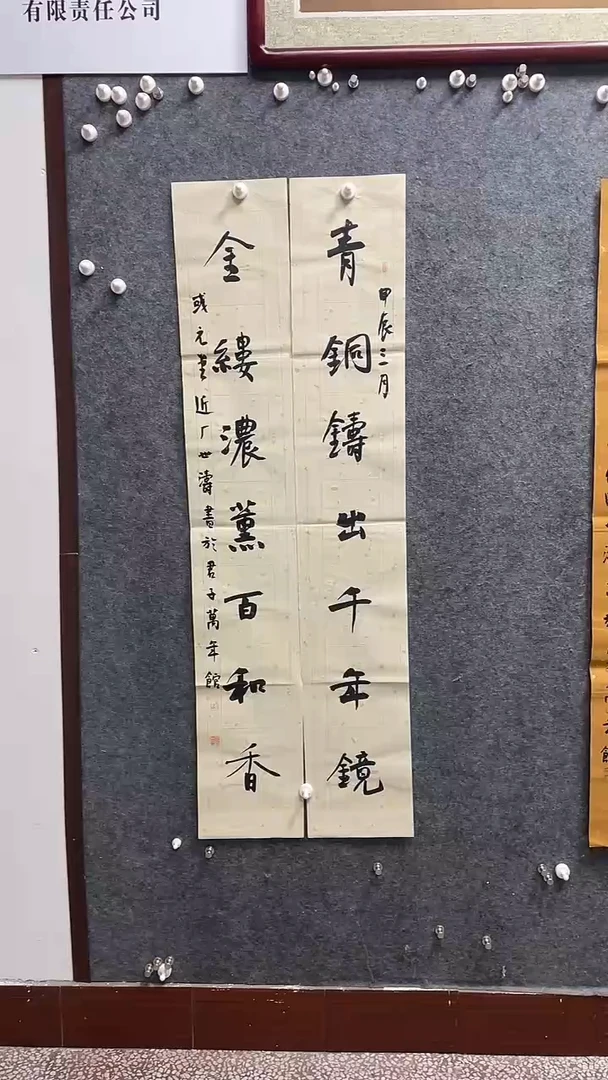 有限责任公司
甲辰三月
青銅鑄出千年鏡
金縷濃薰百和香
或元堂近厂世濤書於君子萬年館